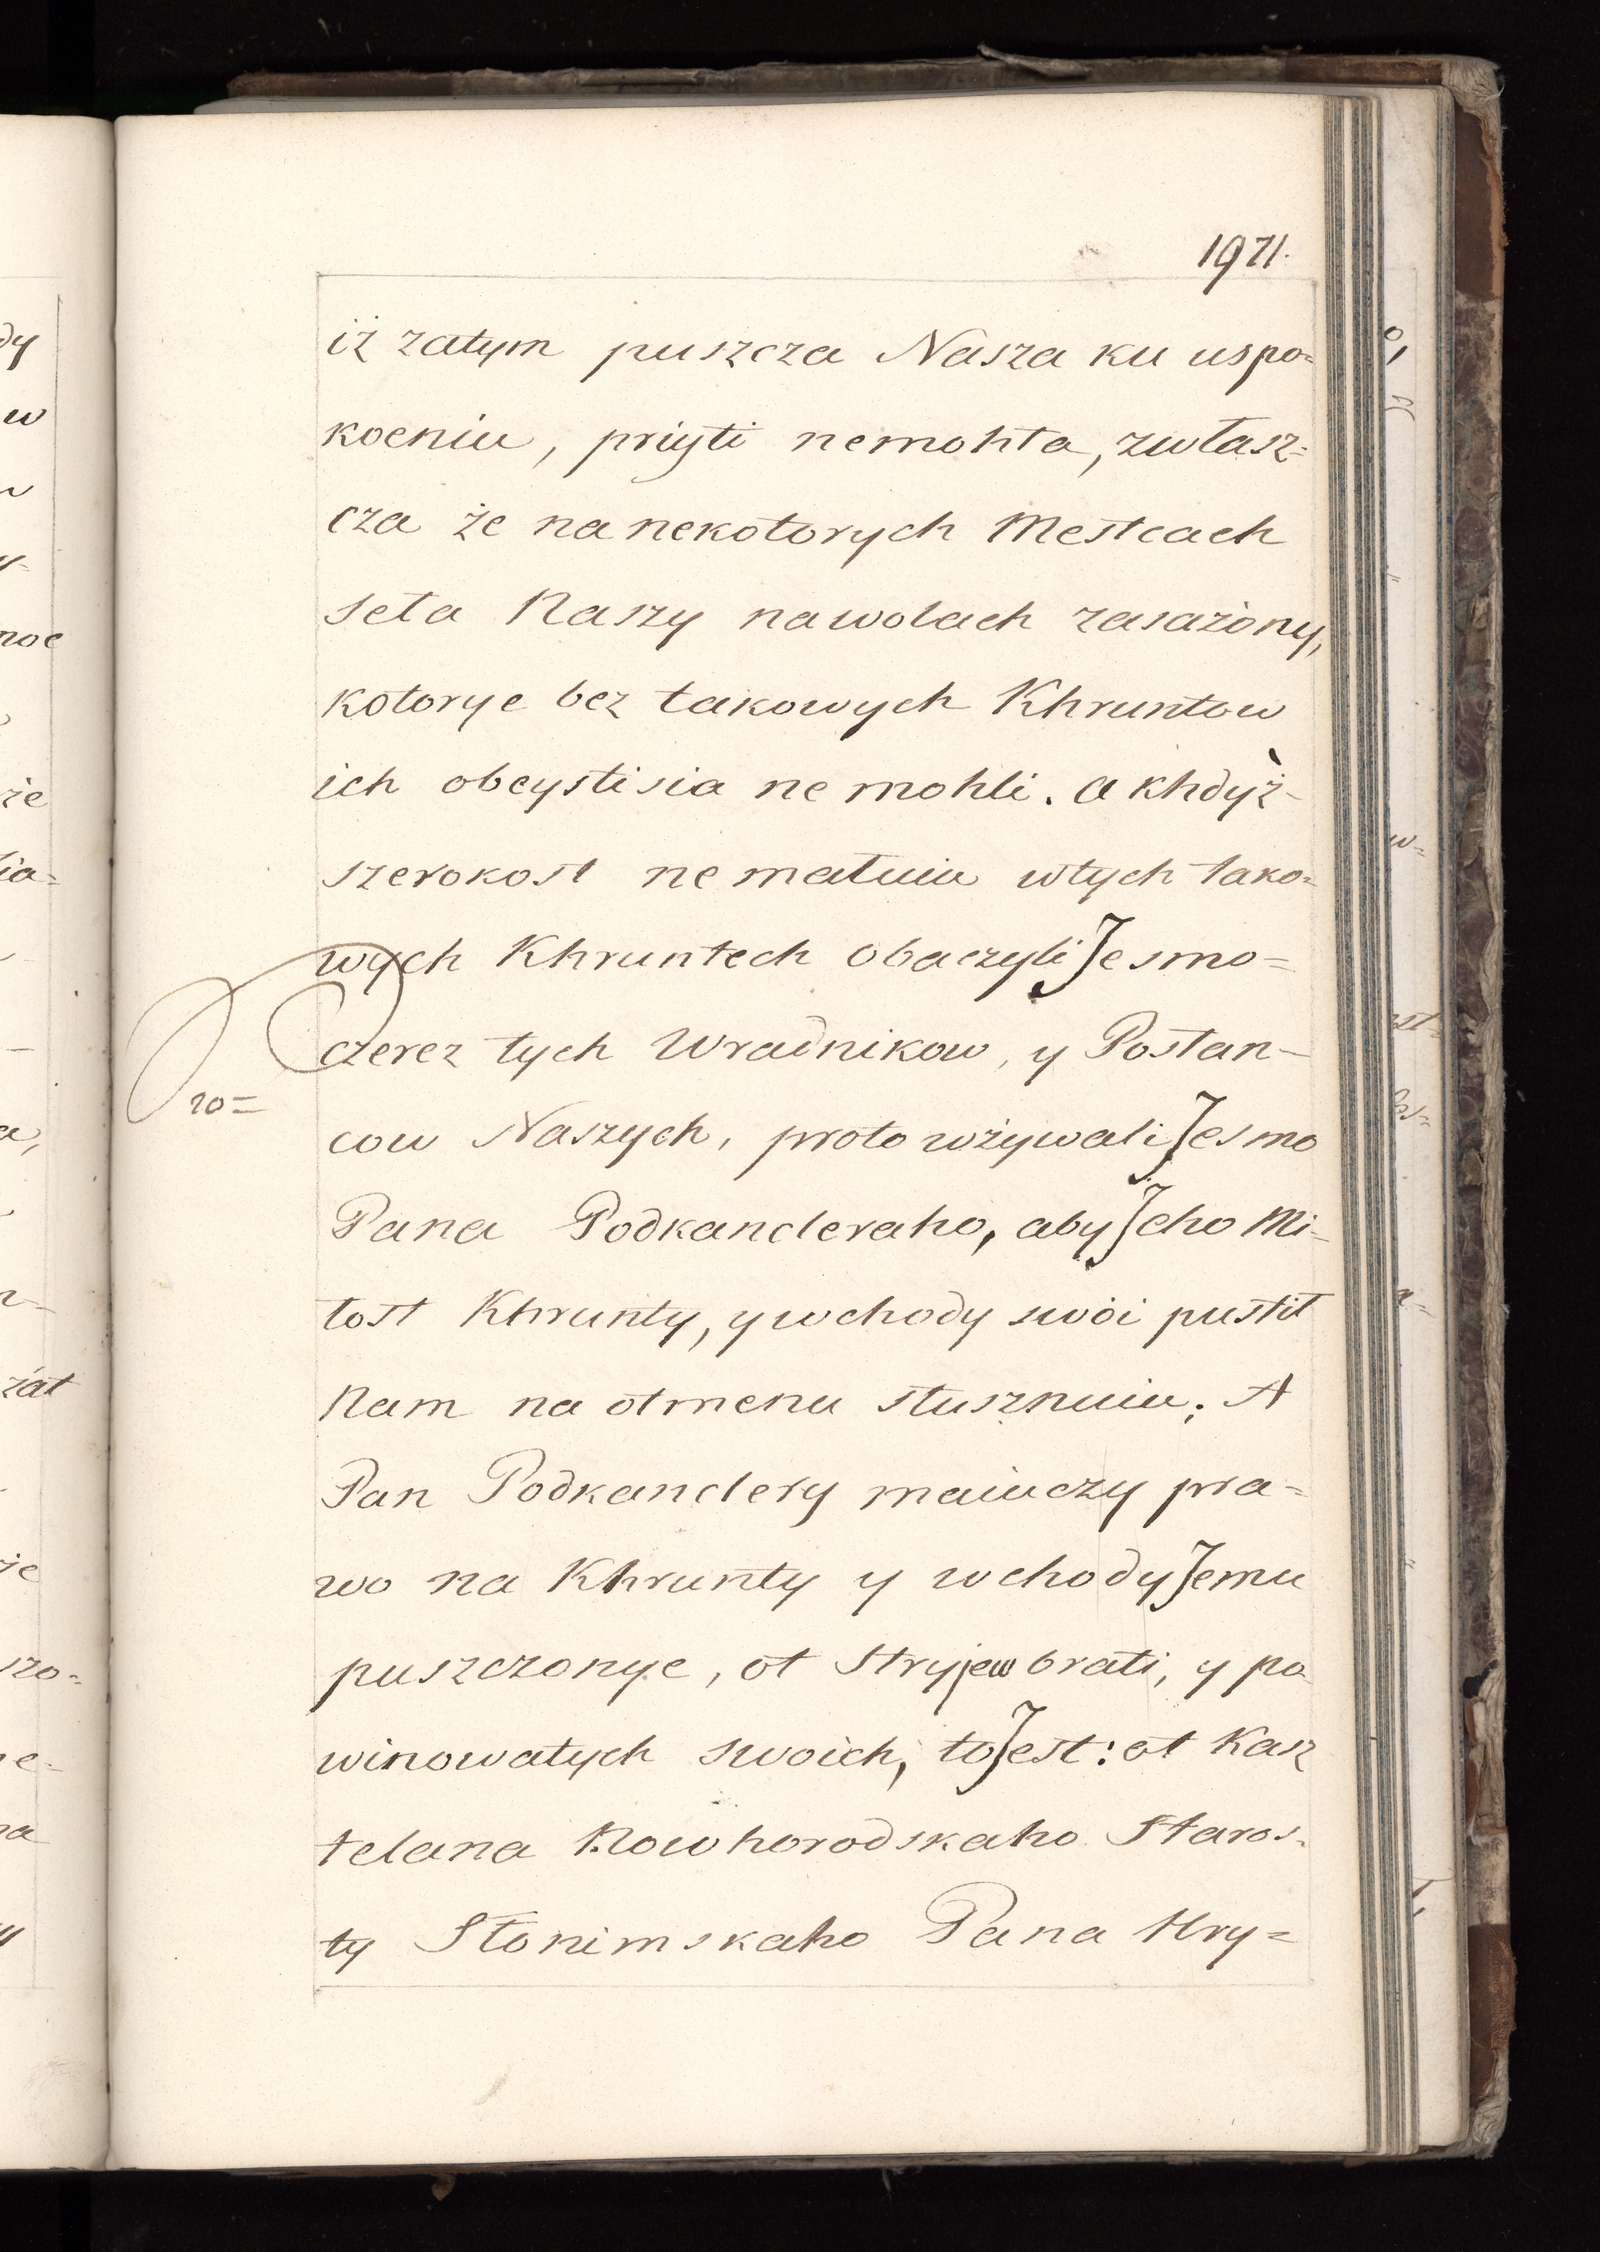 1971.
iż zatym puszcza Nasza ku uspo=
koeniu, priyti nemohła, zwłasz=
cza że na nekotorych Mestcach
seła Naszy na wolach zasażony,
kotorye bez takowych Khruntow
ich obeystisia ne mohli. A khdyż
szerokost ne matuiu wtych tako=
wych Khruntech obaczyli Jesmo=
czerez tych Wradnikow, y Posłan-
cow Naszych, proto wżywali Jesmo
Pana Podkancleraho, aby Jeho Mi=
łost Khrunty, y wchody swoi pustił
Nam na otmenu słusznuiu; A
Pan Podkanclery maiuczy pra=
wo na Khrunty y wchody Jemu
puszczonye, ot Stryjew brati, y po
winowatych swoich, to Jest: ot Kasz
telana Nowhorodskaho Staros-
ty Słonimskaho Pana Hry=
ro=